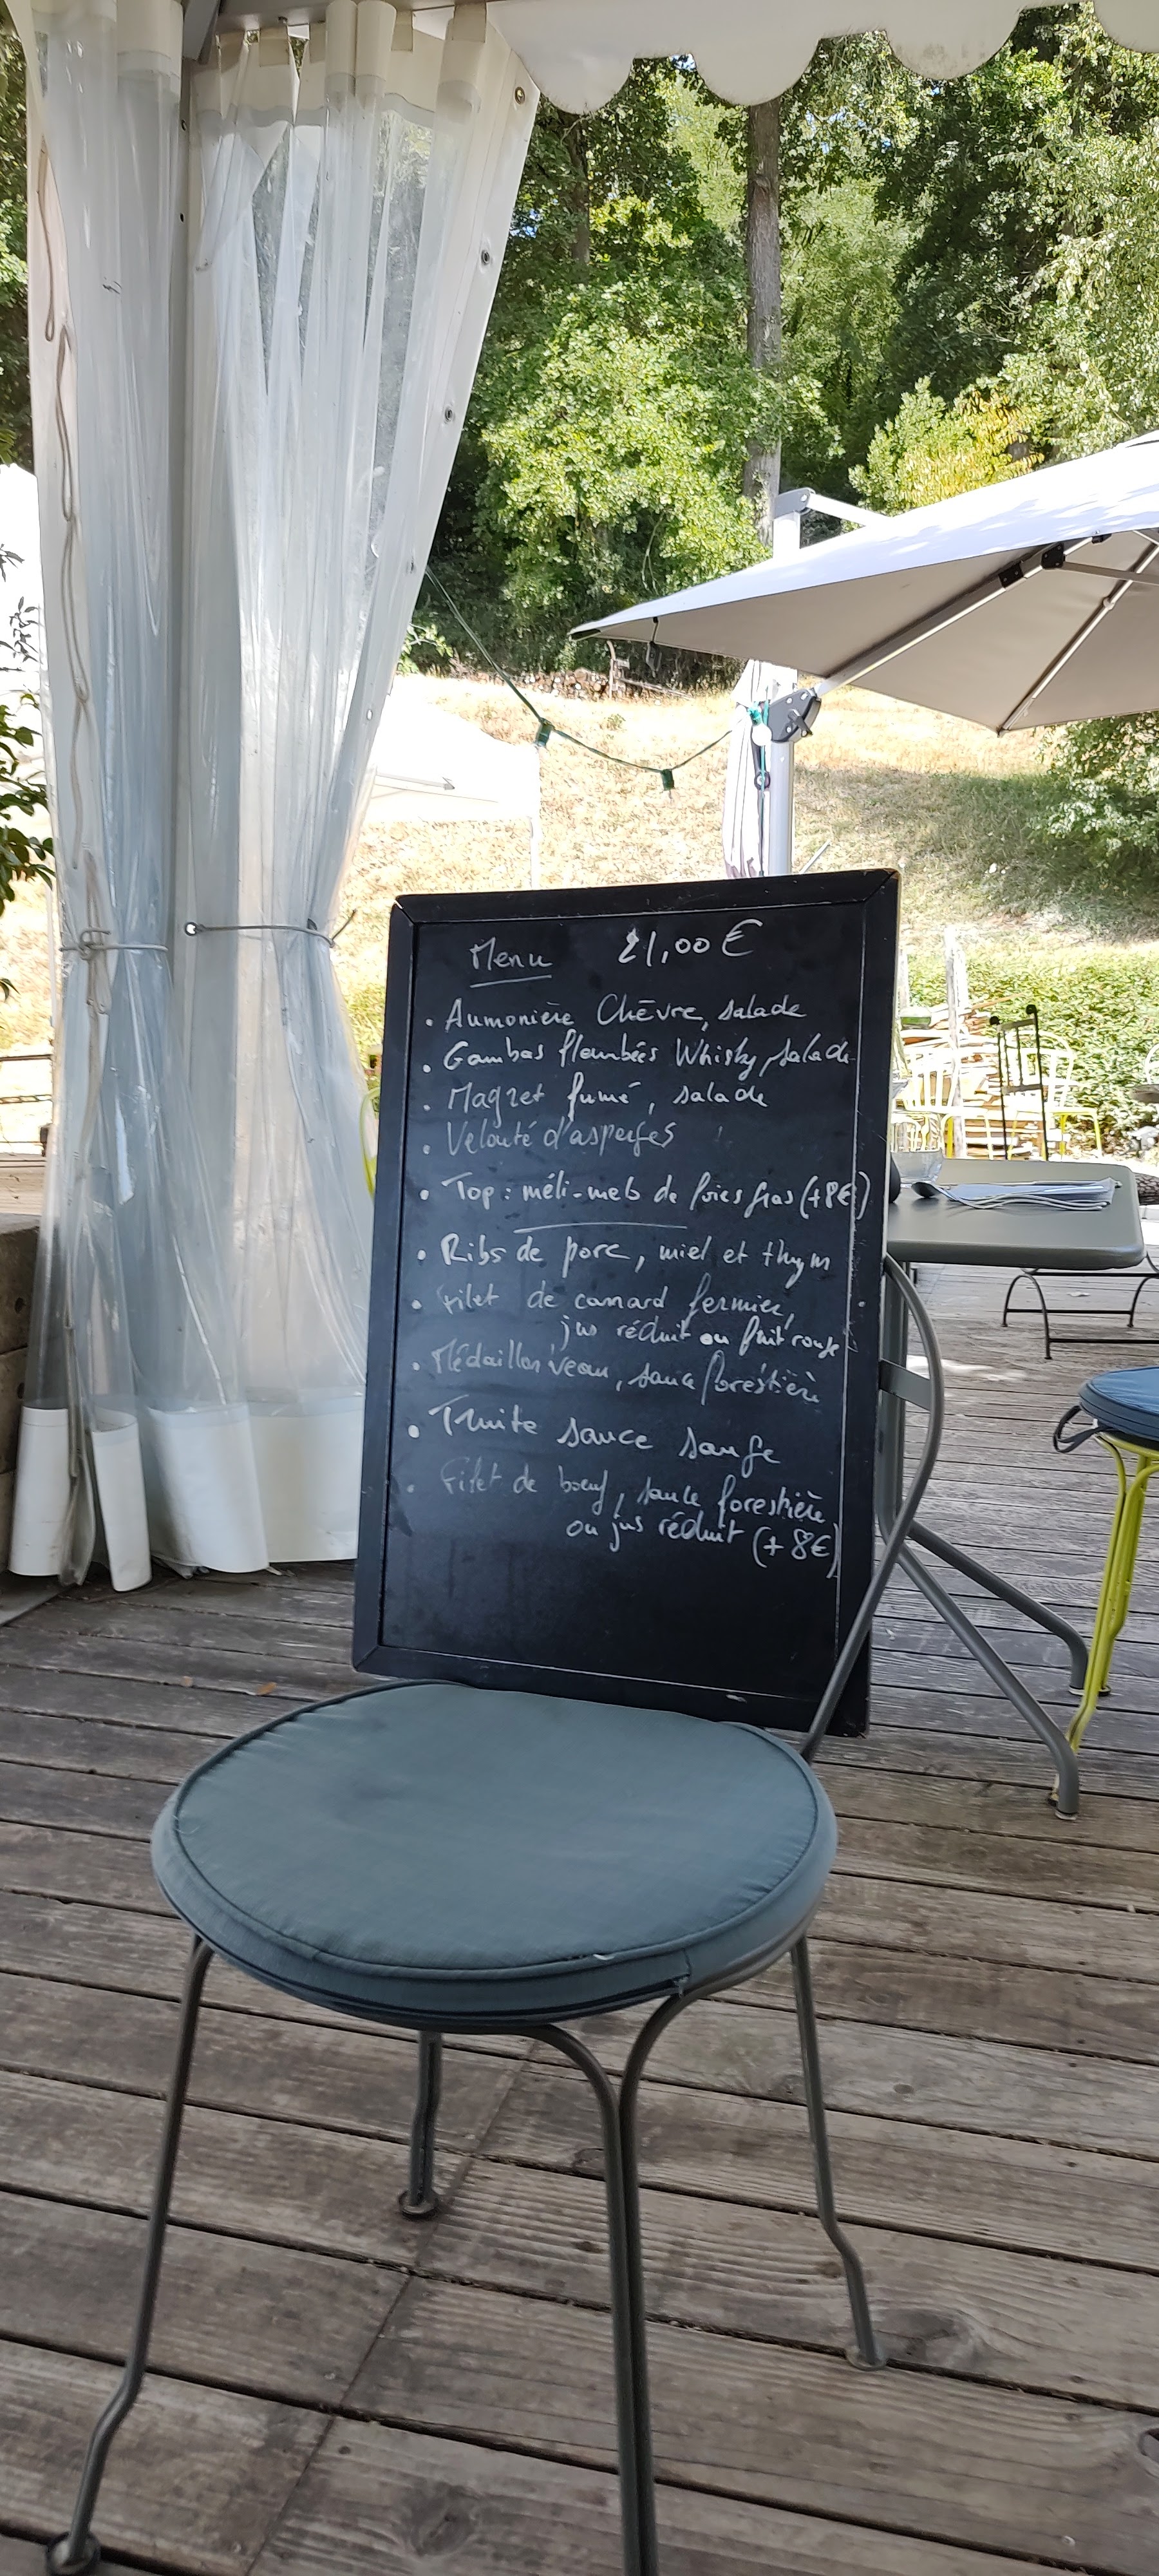 Menu 21,00 €
• Aumonière Chèvre, salade
• Gambas flambées Whisky, salade
• Magret fumé, salade
• Velouté d'asperges
• Top : méli-melo de foies gras (+8€)
• Ribs de porc, miel et thym
• Filet de canard fermier,
jus réduit ou fruit rouge
• Médaillon veau, sauce forestière
• Truite sauce sauge
• Filet de bœuf, sauce forestière
ou jus réduit (+ 8€)